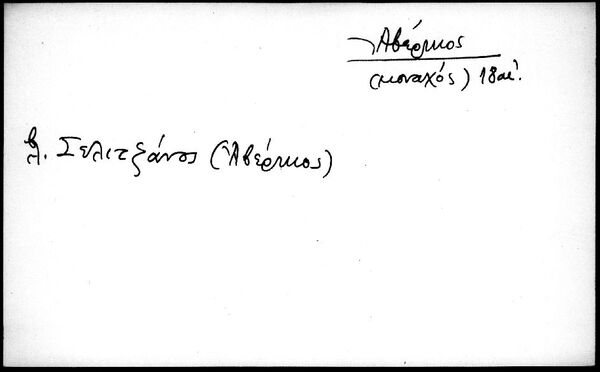 Ἀβέρκιος
(μοναχός) 18 αἰ.
βλ. Σελιτζάνος (Ἀβέρκιος)